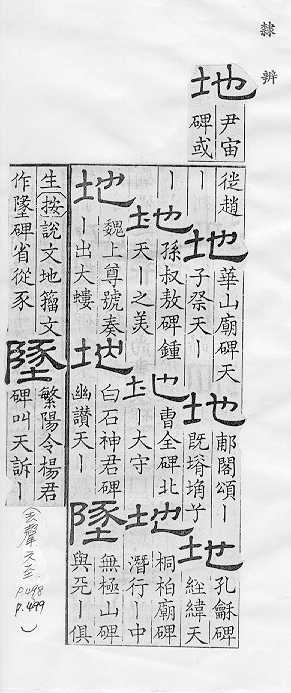 隸辨
地
尹宙
碑或
從趙
丨
地
華山廟碑天
子祭天丨
地
郙閣頌丨
既塉埆
地
孔龢碑
經緯天
丨
地
孫叔敖碑鍾
天丨之美
地
曹全碑北
丨大守
地
桐柏廟碑
潛行丨中
地
魏上尊號奏
丨出大螻
地
白石神君碑
幽讚天丨
墬
無極山碑
與天丨俱
生按說文地籀文
作墬碑省從豕
墬
繁陽令楊君
碑叫天訴丨
(去聲 六至
p.498
p.499)